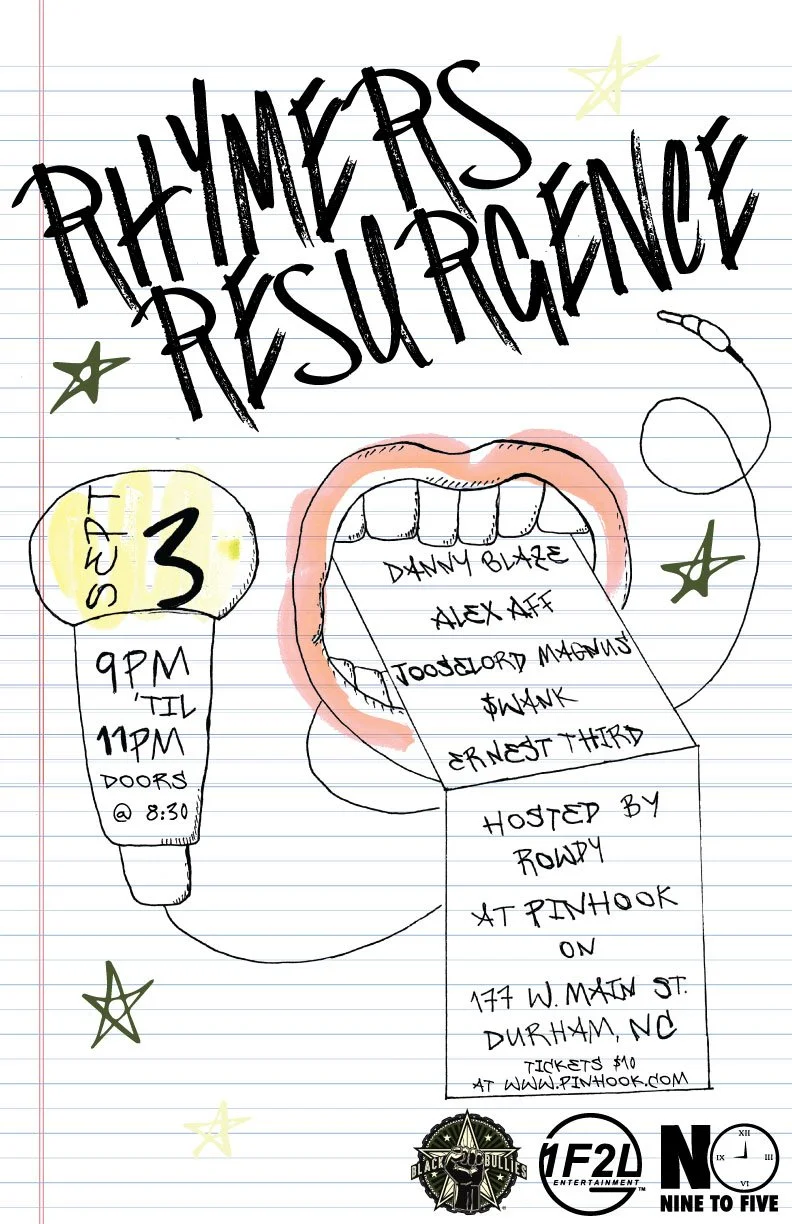 RHYMERS
RESURGENCE
SEPT 3
9PM
'TIL
11PM
DOORS
@ 8:30
DANNY BLAZE
ALEX AFF
JOOSELORD MAGNUS
$WANK
ERNEST THIRD
HOSTED BY
ROWDY
AT PINHOOK
ON
177 W. MAIN ST.
DURHAM, NC
TICKETS $10
AT WWW.PINHOOK.COM
BLACK BULLIES
1F2L
ENTERTAINMENT™
NO
XII
IX III
VI
NINE TO FIVE